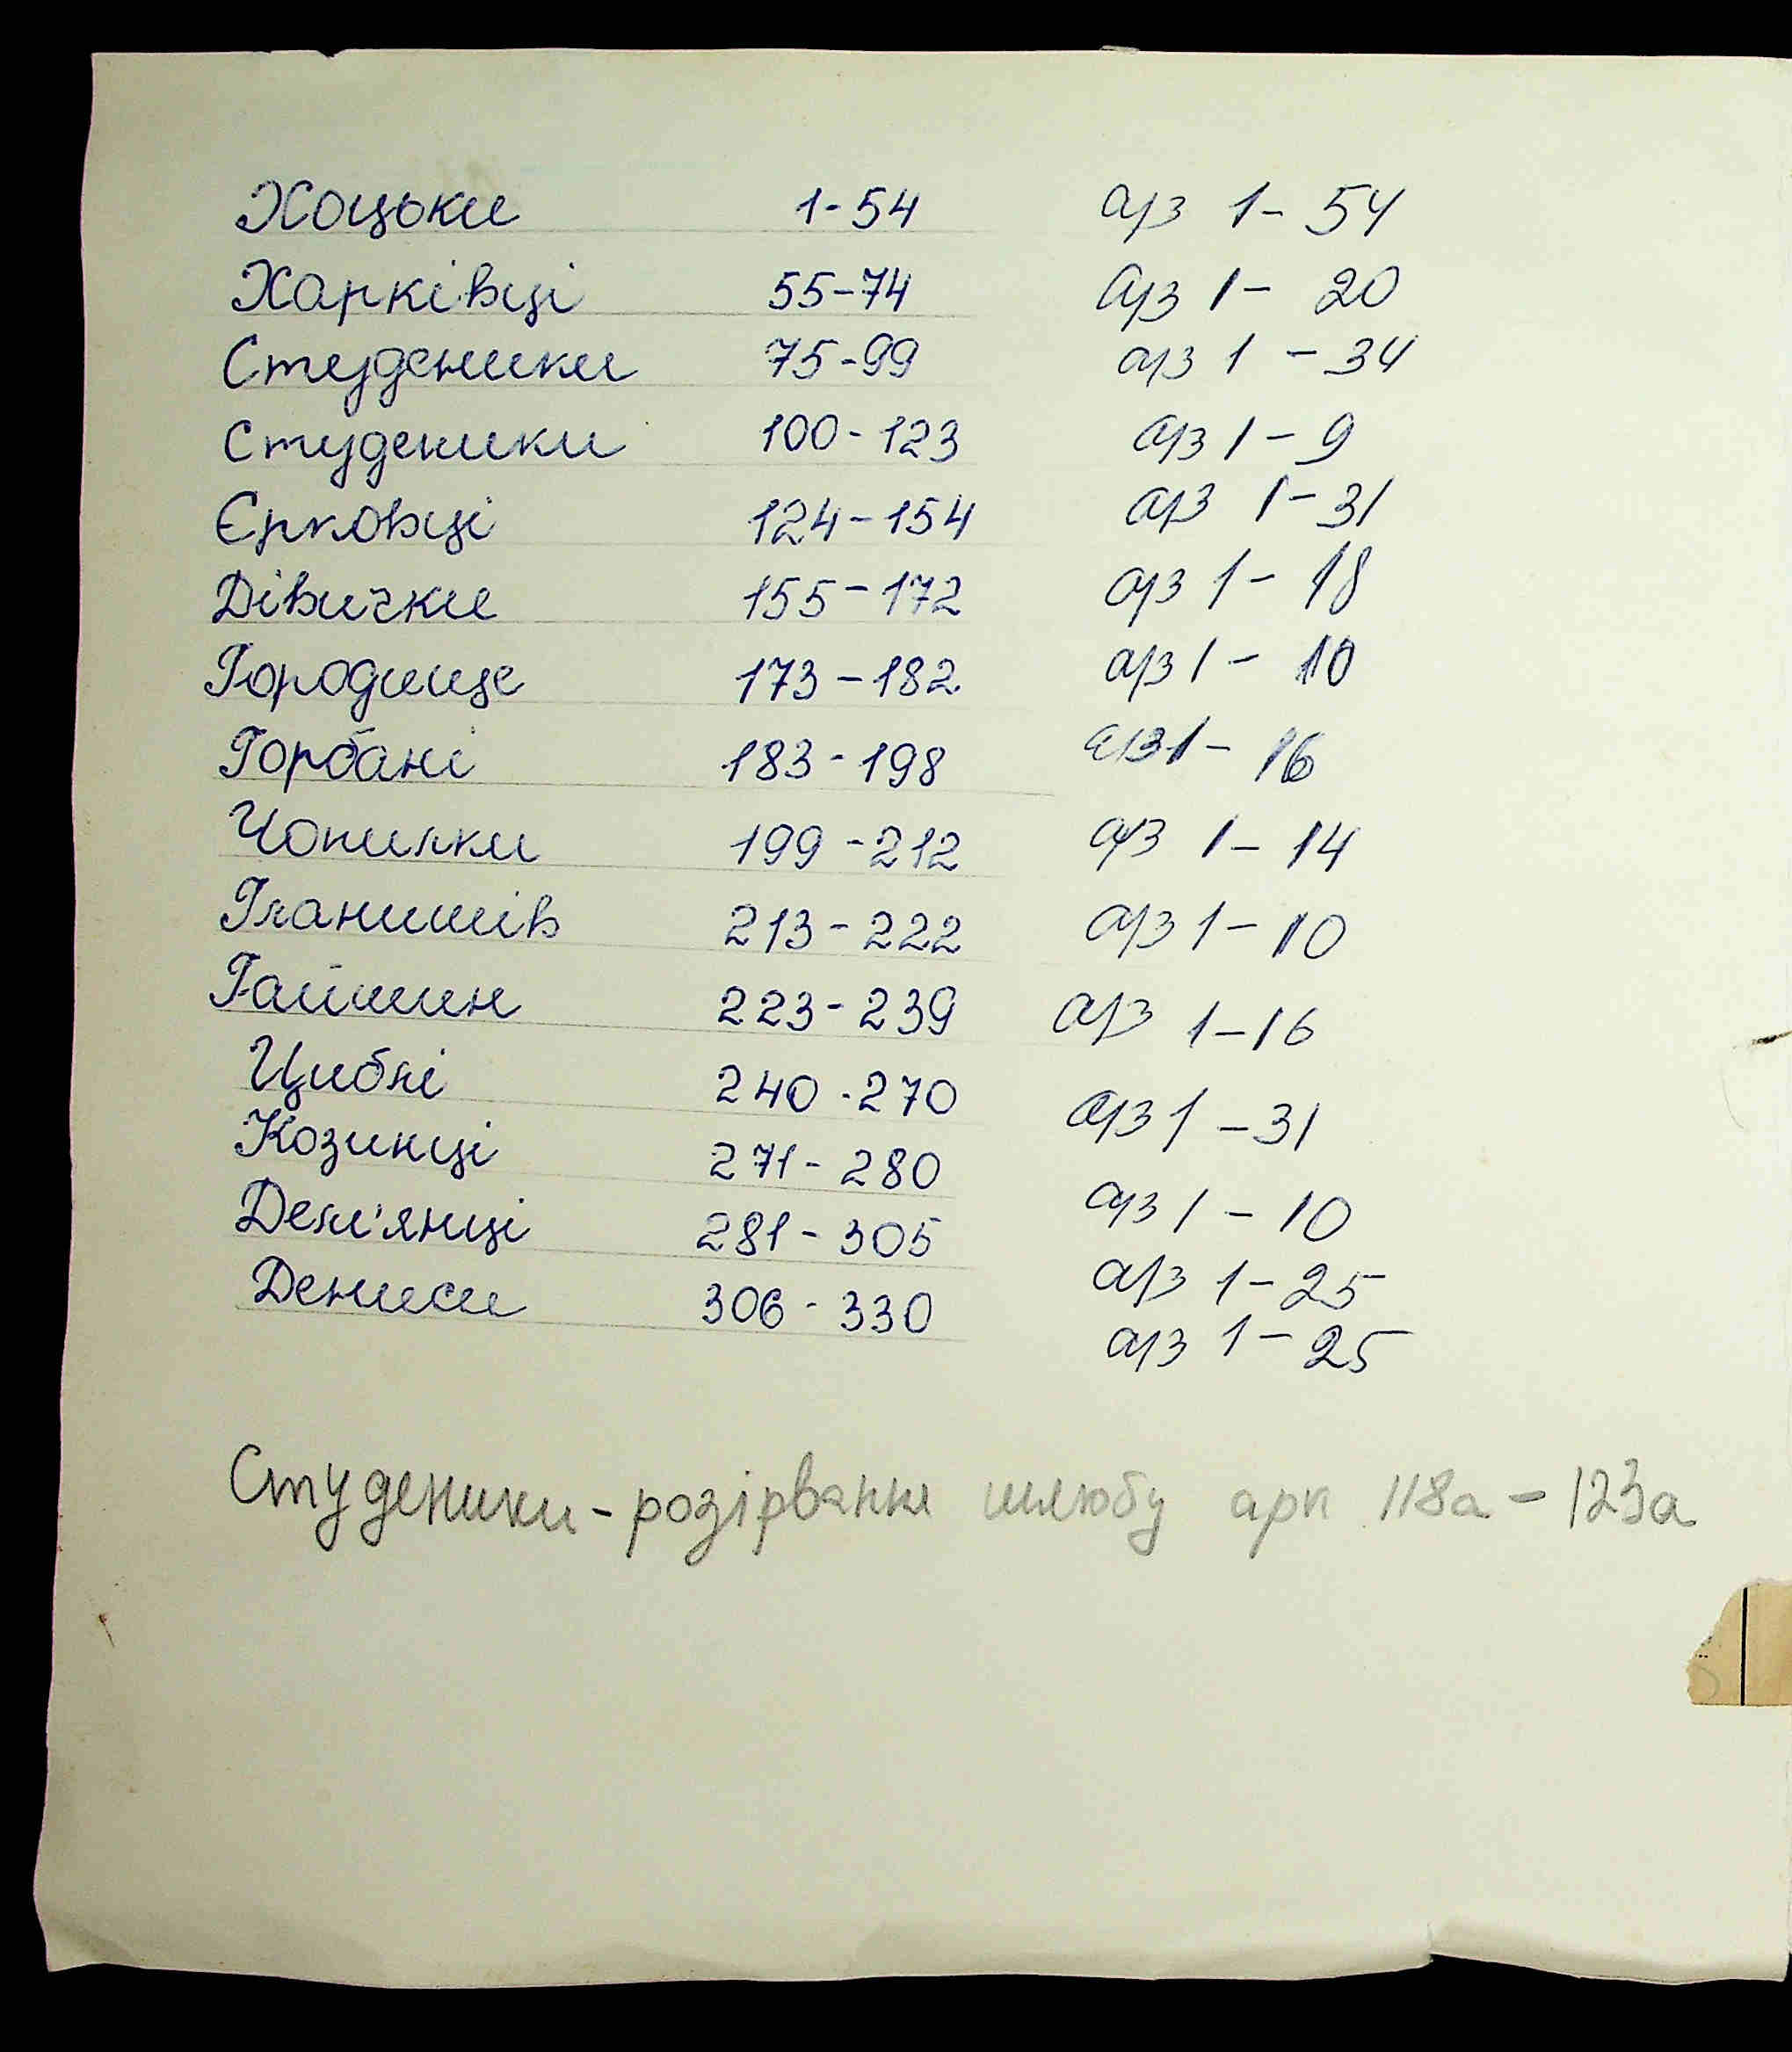 Хоцьки 1-54 а/з 1-54
Харківці 55-74 а/з 1-20
Студеники 75-99 а/з 1-34
Студеники 100-123 а/з 1-9
Єрковці 124-154 а/з 1-31
Дівички 155-172 а/з 1-18
Городище 173-182 а/з 1-10
Горбані 183-198 а/з 1-16
Чопилки 199-212 а/з 1-14
Гланишів 213-222 а/з 1-10
Гайшин 223-239 а/з 1-16
Циблі 240-270 а/з 1-31
Козинці 271-280 а/з 1-10
Дем'янці 281-305 а/з 1-25
Дениси 306-330 а/з 1-25
Студеники - розірвання шлюбу арк 118а-123а